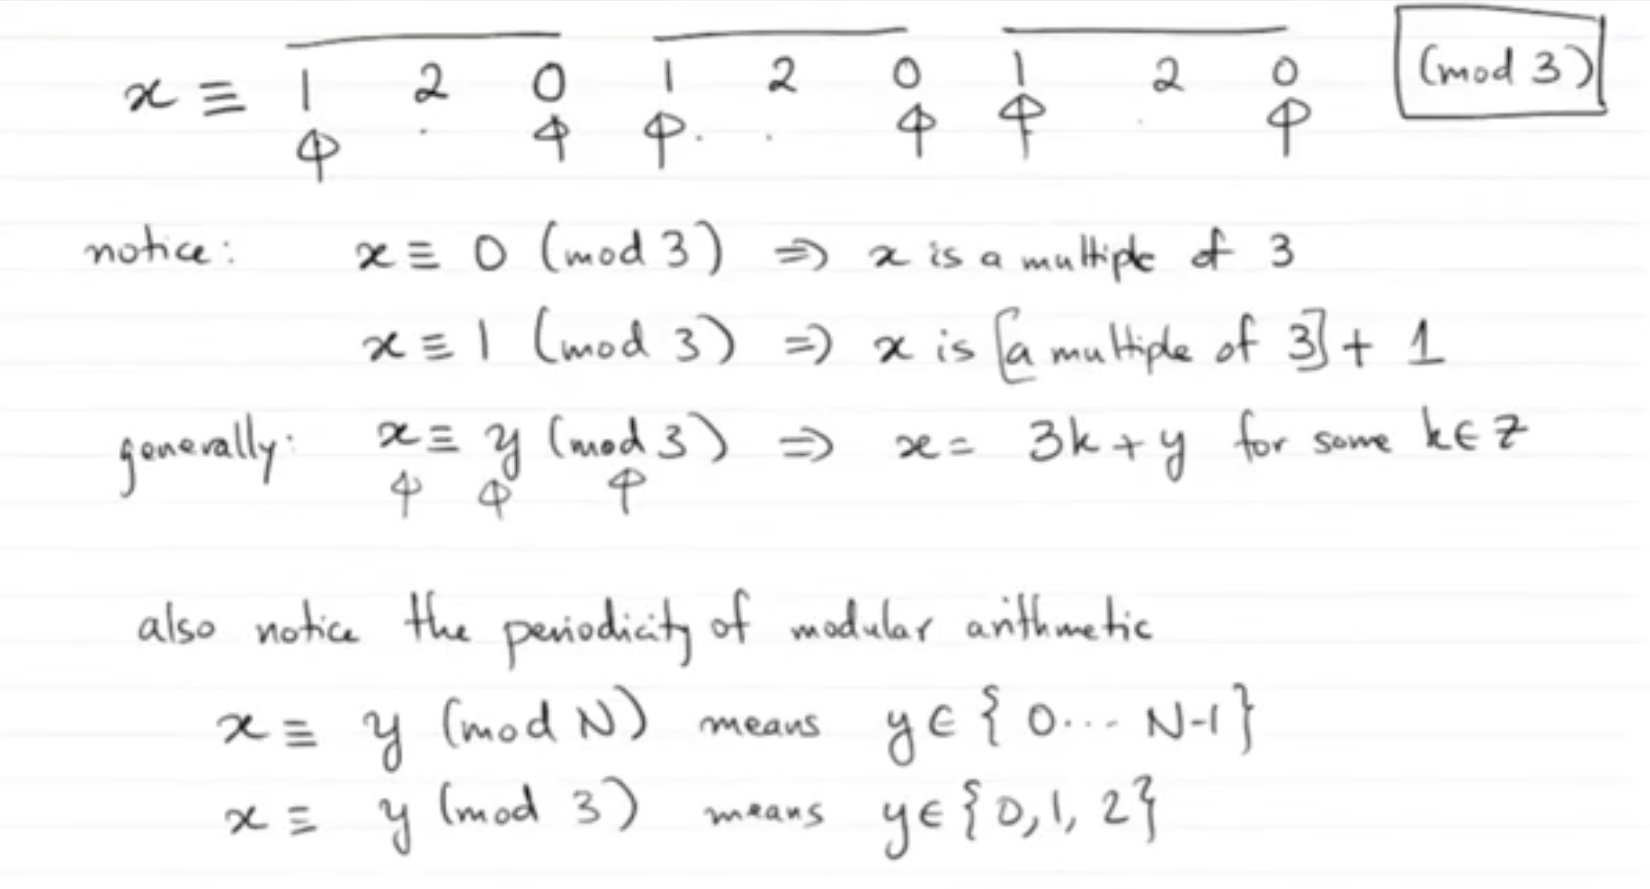 x ≡ 1 2 0 1 2 0 1 2 0 (mod 3)
notice: x ≡ 0 (mod 3) ⇒ x is a multiple of 3
x ≡ 1 (mod 3) ⇒ x is [a multiple of 3] + 1
generally: x ≡ y (mod 3) ⇒ x = 3k + y for some k ∈ Z
also notice the periodicity of modular arithmetic
x ≡ y (mod N) means y ∈ { 0... N-1}
x ≡ y (mod 3) means y ∈ {0, 1, 2}